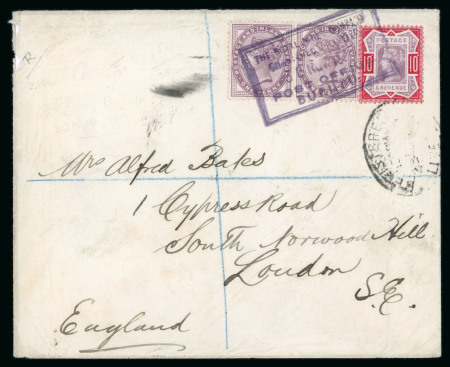 R
POSTAGE
10 10
& REVENUE
POST OFFICE
Mrs Alfred Bates
1 Cypress Road
South Norwood Hill
London
S.E.
England